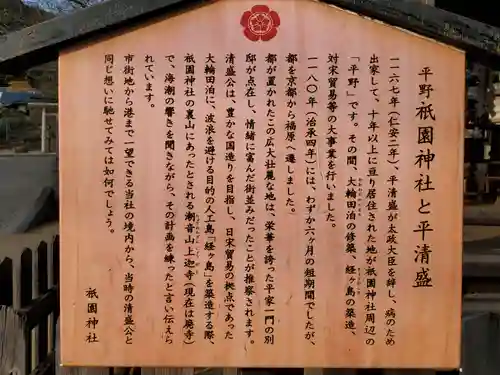 平野祇園神社と平清盛
一一六七年（仁安二年）平清盛が太政大臣を辞し、病のため
出家して、十年以上に亘り居住された地が祇園神社周辺の
「平野」です。その間、大輪田泊の修築、経ヶ島の築造、
対宋貿易等の大事業を行いました。
一一八〇年（治承四年）には、わずか六ヶ月の短期間でしたが、
都を京都から福原へ遷しました。
都が置かれたこの広大壮麗な地は、栄華を誇った平家一門の別
邸が点在し、情緒に富んだ街並みだったことが推察されます。
清盛公は、豊かな国造りを目指し、日宋貿易の拠点であった
大輪田泊に、波浪を避ける目的の人工島「経ヶ島」を築造する際、
祇園神社の裏山にあったとされる潮音山上迦寺（現在は廃寺）
で、海潮の響きを聞きながら、その計画を練ったと言い伝えら
れています。
市街地から港まで一望できる当社の境内から、当時の清盛公と
同じ想いに馳せてみては如何でしょう。
祇園神社